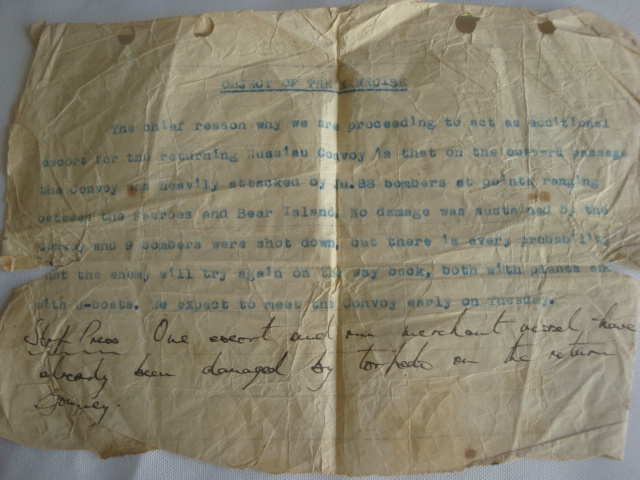 OBJECT OF THE EXERCISE
The chief reason why we are proceeding to act as additional
escort for the returning Russian Convoy is that on the outward passage
the Convoy was heavily attacked by Ju.88 bombers at points ranging
between the Faeroes and Bear Island. No damage was sustained by the
Convoy and 9 bombers were shot down, but there is every probability
that the enemy will try again on the way back, both with planes and
with U-boats. We expect to meet the Convoy early on Tuesday.
Stop Press One escort and one merchant vessel have
already been damaged by torpedo on the return
journey.